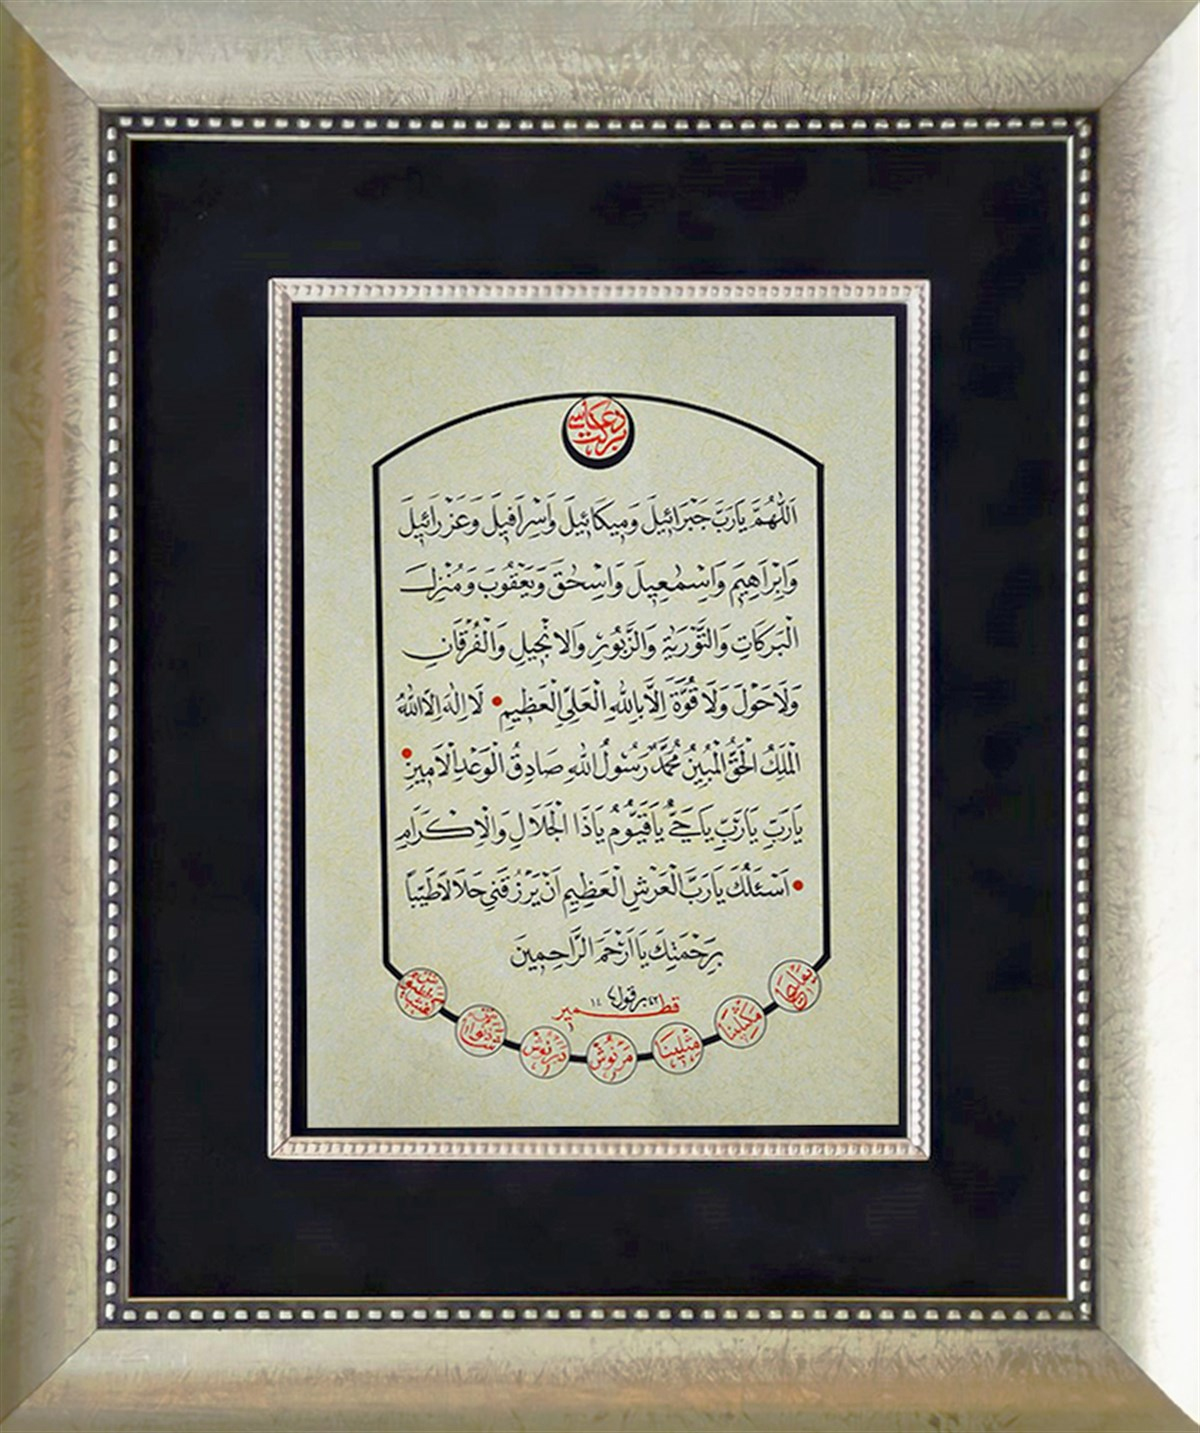 بركت دعاسى
اَللّٰهُمَّ يَارَبَّ جَبْرَائِيلَ وَمِيكَائِيلَ وَاِسْرَافِيلَ وَعَزْرَائِيلَ
وَاِبْرَاهِيمَ وَاِسْمٰعِيلَ وَاِسْحٰقَ وَيَعْقُوبَ وَمُنْزِلَ
الْبَرَكَاتِ وَالتَّوْرٰيةِ وَالزَّبُورِ وَالْاِنْجِيلِ وَالْفُرْقَانِ
وَلَاحَوْلَ وَلَا قُوَّةَ اِلَّا بِاللّٰهِ الْعَلِىِّ الْعَظِيمِ • لَا اِلٰهَ اِلَّا اللّٰهُ
الْمَلِكُ الْحَقُّ الْمُبِينُ مُحَمَّدٌ رَسُولُ اللّٰهِ صَادِقُ الْوَعْدِ الْاَمِينِ •
يَارَبِّ يَارَبِّ يَاحَىُّ يَاقَيُّومُ يَاذَا الْجَلَالِ وَالْاِكْرَامِ
• اَسْئَلُكَ يَارَبَّ الْعَرْشِ الْعَظِيمِ اَنْ يَرْزُقَنِى حَلَالاً طَيِّباً
بِرَحْمَتِكَ يَا اَرْحَمَ الرَّاحِمِينَ
قطمير
يمليخا مكثلينا مثلينا مرنوش دبرنوش شاذنوش كفشططيوش